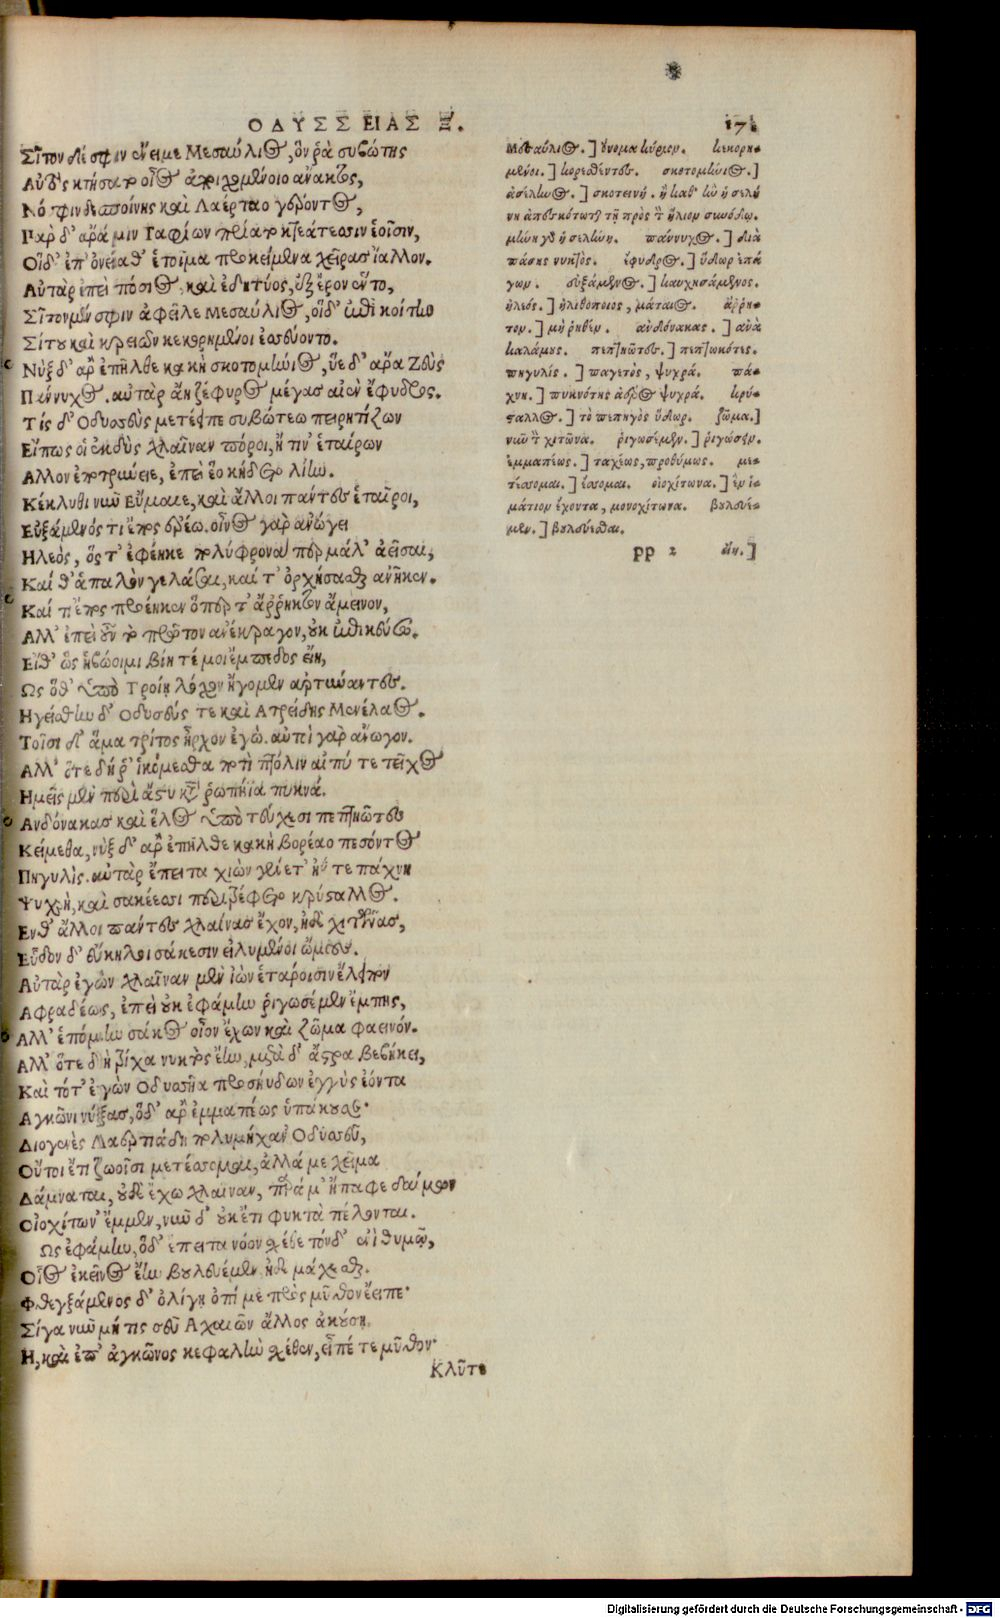 ΟΔΥΣΣΕΙΑΣ Ξ.
171
Σῖτον δέ σφιν ἔνειμε Μεσαύλιος, ὅν ῥὰ συβώτης
Αὐτὸς κτήσατο οἶος ἀποιχομένοιο ἄνακτος,
Νόσφιν δεσποίνης καὶ Λαέρταο γέροντος,
Παρ δ' ἄρα μιν Ταφίων πρίατο κτεάτεσσιν ἑοῖσιν,
Οἱ δ' ἐπ' ὀνείαθ' ἑτοῖμα προκείμενα χεῖρας ἴαλλον.
Αὐτὰρ ἐπεὶ πόσιος καὶ ἐδητύος, ἐξ ἔρον ἕντο,
Σῖτον μέν σφιν ἀφεῖλε Μεσαύλιος, οἱ δ' ἐπὶ κοίτην
Σίτου καὶ κρειῶν κεκορημένοι ἐσσεύοντο.
Νὺξ δ' ἄρ' ἐπῆλθε κακὴ σκοτομήνιος, ὗε δ' ἄρα Ζεὺς
Πάννυχος. αὐτὰρ ἄη ζέφυρος μέγας αἰὲν ἔφυδρος.
Τοῖς δ' Ὀδυσσεὺς μετέειπε συβώτεω πειρητίζων
Εἴπως οἱ ἐκδὺς χλαῖναν πόροι, ἤ τιν' ἑταίρων
Ἄλλον ἐποτρύνειε, ἐπεὶ ἑο κήδετο λίην.
Κέκλυθι νῦν Εὔμαιε, καὶ ἄλλοι πάντες ἑταῖροι,
Εὐξάμενός τι ἔπος ἐρέω. οἶνος γὰρ ἀνώγει
Ἠλεὸς, ὅς τ' ἐφέηκε πολύφρονα περ μάλ' ἀεῖσαι,
Καί θ' ἁπαλὸν γελάσαι, καί τ' ὀρχήσασθαι ἀνῆκεν.
Καί τι ἔπος προέηκεν ὅπερ τ' ἄρρητον ἄμεινον,
Ἀλλ' ἐπεὶ οὖν τὸ πρῶτον ἀνέκραγον, οὐκ ἐπικεύσω.
Εἴθ' ὣς ἡβώοιμι βίη τέ μοι ἔμπεδος εἴη,
Ὡς ὅθ' ὑπὸ Τροίη λόχον ἤγομεν ἀρτύναντες.
Ἡγείσθην δ' Ὀδυσεύς τε καὶ Ἀτρείδης Μενέλαος.
Τοῖσι δ' ἅμα τρίτος ἦρχον ἐγώ. αὐτοὶ γὰρ ἄνωγον.
Ἀλλ' ὅτε δή ῥ' ἱκόμεσθα ποτὶ πτόλιν αἰπύ τε τεῖχος
Ἡμεῖς μὲν περὶ ἄστυ κατὰ ῥωπήϊα πυκνά.
Ἀνδόνακας καὶ ἕλος ὑπὸ τεύχεσι πεπτηῶτες
Κείμεθα, νὺξ δ' ἄρ' ἐπῆλθε κακὴ βορέαο πεσόντος
Πηγυλίς. αὐτὰρ ἔπειτα χιὼν γένετ' ἠΰτε πάχνη
Ψυχρὴ, καὶ σακέεσσι περιτρέφετο κρύσταλλος.
Ἔνθ' ἄλλοι πάντες χλαίνας ἔχον, ἠδὲ χιτῶνας,
Εὗδον δ' εὔκηλοι σάκεσιν εἰλυμένοι ὤμους.
Αὐτὰρ ἐγὼν χλαῖναν μὲν ἰὼν ἑτάροισιν ἔλειπον
Ἀφραδέως, ἐπεὶ οὐκ ἐφάμην ῥιγωσέμεν ἔμπης,
Ἀλλ' ἑπόμην σάκος οἶον ἔχων καὶ ζῶμα φαεινόν.
Ἀλλ' ὅτε δὴ τρίχα νυκτὸς ἔην, μετὰ δ' ἄστρα βεβήκει,
Καὶ τότ' ἐγὼν Ὀδυσῆα προσηύδων ἐγγὺς ἐόντα
Ἀγκῶνι νύξας, ὅδ' ἄρ' ἐμμαπέως ὑπάκουσε·
Διογενὲς Λαερτιάδη πολυμήχαν' Ὀδυσσεῦ,
Οὔτοι ἔτι ζωοῖσι μετέσσομαι, ἀλλά με χεῖμα
Δάμναται, οὐδὲ ἔχω χλαῖναν, παρά μ' ἤπαφε δαίμων
Οἰοχίτων' ἔμμεν, νῦν δ' οὐκ ἔτι φυκτὰ πέλονται.
Ὡς ἐφάμην, ὅδ' ἔπειτα νόον σχέθε τόνδ' ἐνὶ θυμῷ,
Οἷος ἐκεῖνος ἔην βουλευέμεν ἠδὲ μάχεσθαι.
Φθεγξάμενος δ' ὀλίγῃ ὀπί με πρὸς μῦθον ἔειπε·
Σίγα νῦν μή τις σεῦ Ἀχαιῶν ἄλλος ἀκούσῃ.
Ἦ, καὶ ἐπ' ἀγκῶνος κεφαλὴν σχέθεν, εἶπέ τε μῦθον·
Κλῦτε
Μεσαύλιος.] ὄνομα κύριον. κεκορη-
μένοι.] κορεσθέντες. σκοτομήνιος.]
ἀσέληνος.] σκοτεινή. ἢ καθ' ἣν ἡ σελή
νη ἀποσκότωται τῇ πρὸς τὸν ἥλιον συνόδῳ.
μήνη γὰρ ἡ σελήνη. πάννυχος.] διὰ
πάσης νυκτός. ἔφυδρος.] ὕδωρ ἐπά
γων. εὐξάμενος.] καυχησάμενος.
ἠλεός.] ἠλιθοποιος, μάταιος. ἄρρη-
τον.] μὴ ῥηθέν. ἀνδόνακας.] ἀνὰ
καλάμους. πεπτηῶτες.] πεπτωκότες.
πηγυλίς.] παγετὸς, ψυχρά. πά-
χνη.] πυκνότης ἀέρος ψυχρά. κρύ-
σταλλος.] τὸ πεπηγὸς ὕδωρ. ζῶμα.]
νῦν τὸν χιτῶνα. ῥιγωσέμεν.] ῥιγώσειν.
ἐμμαπέως.] ταχέως, προθύμως. με-
τέσσομαι.] ἔσσομαι. οἰοχίτωνα.] ἓν ἱ-
μάτιον ἔχοντα, μονοχίτωνα. βουλευέ-
μεν.] βουλεύεσθαι.
pp 2 εἴη.]
Digitalisierung gefördert durch die Deutsche Forschungsgemeinschaft - DFG